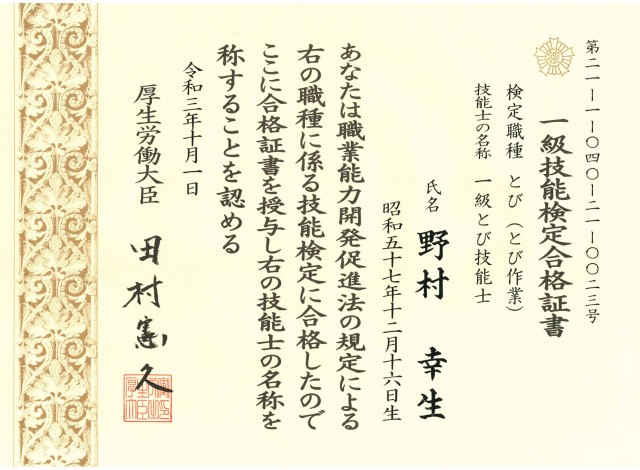 第二一-一-〇四〇-二一-〇〇二三号
一級技能検定合格証書
検定職種 とび（とび作業）
技能士の名称 一級とび技能士
氏名 野村 幸生
昭和五十七年十二月十六日生
あなたは職業能力開発促進法の規定による
右の職種に係る技能検定に合格したので
ここに合格証書を授与し右の技能士の名称を
称することを認める
令和三年十月一日
厚生労働大臣 田村憲久